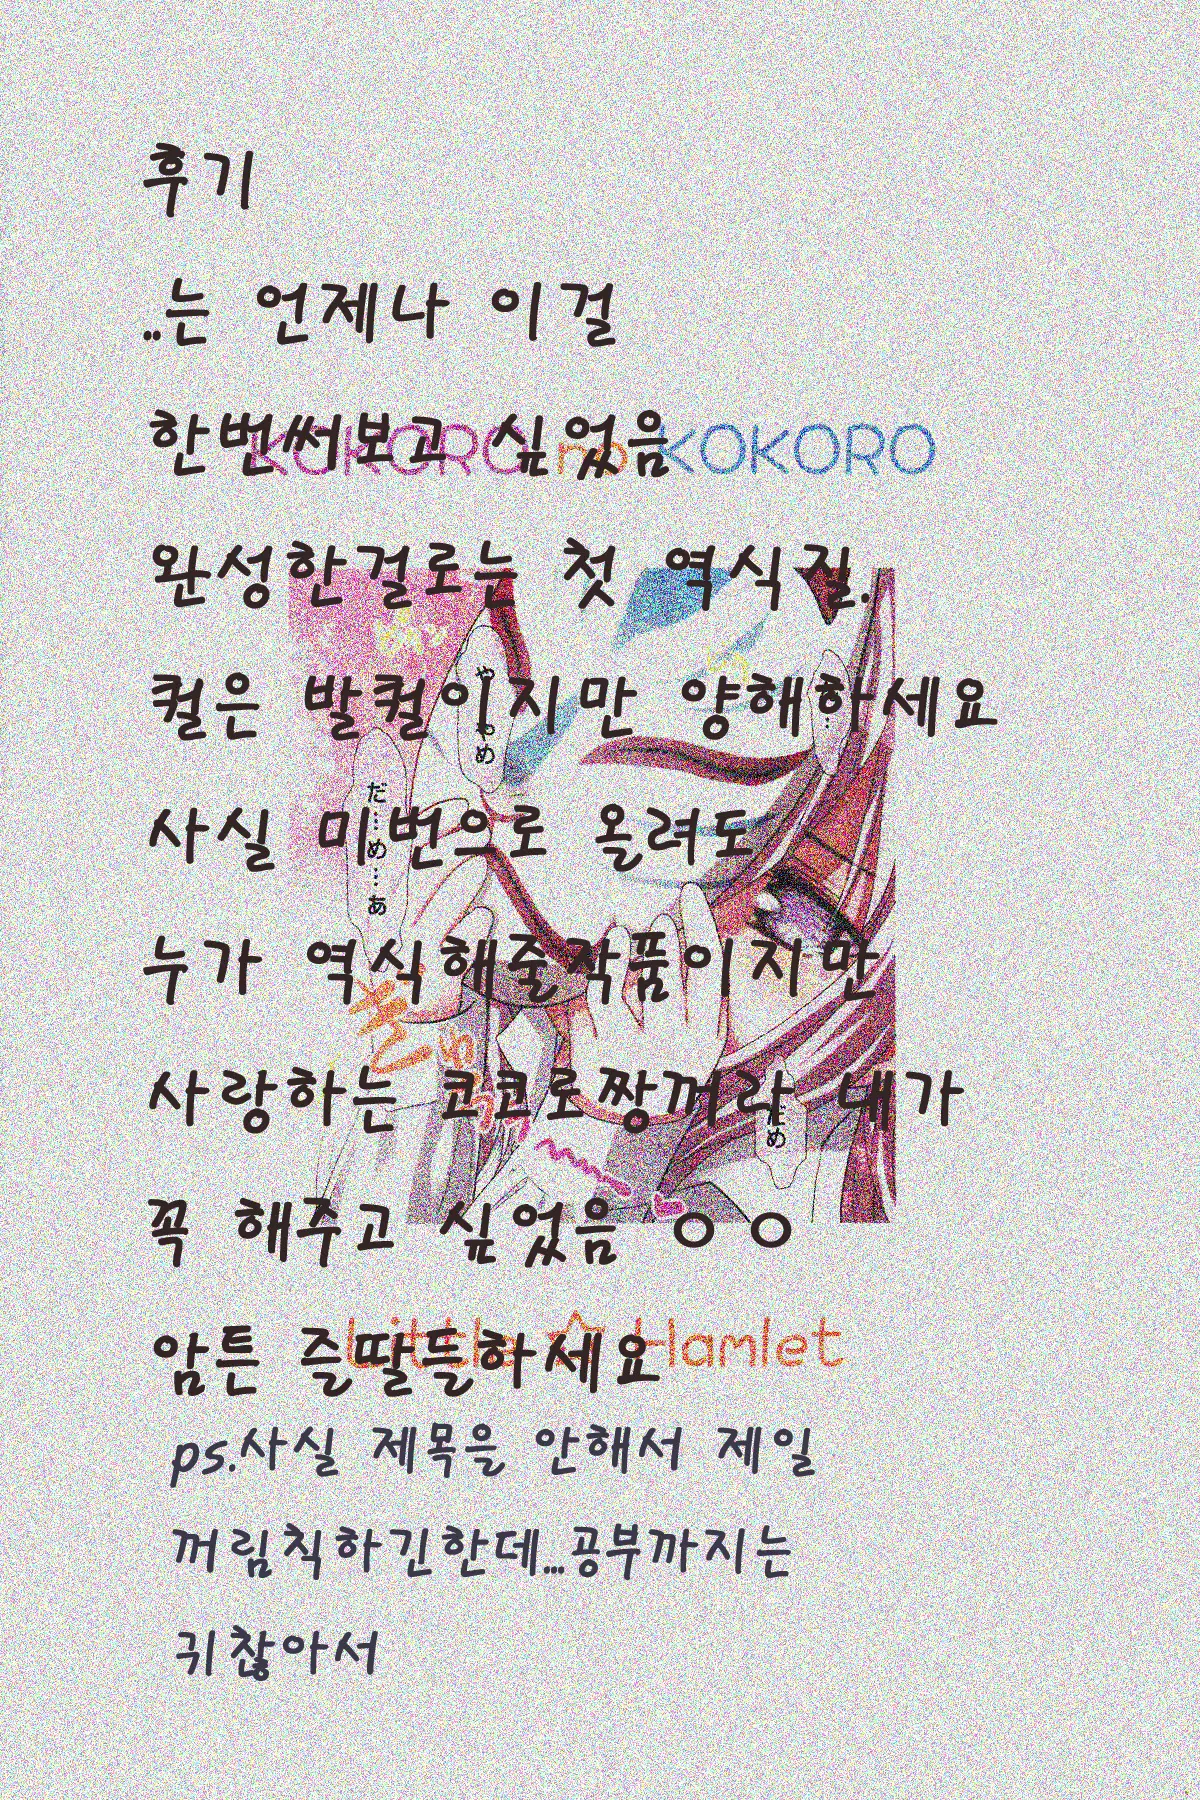 후기
..는 언제나 이걸
한번써보고 싶었음
KOKORO no KOKORO
완성한걸로는 첫 역식질.
퀄은 발퀄이지만 양해하세요
や
め
사실 미번으로 올려도
だ…め…あ
누가 역식해줄작품이지만
사랑하는 코코로짱꺼라 내가
だめ
꼭 해주고 싶었음 ㅇ ㅇ
암튼 즐딸들하세요
Little Hamlet
ps.사실 제목은 안해서 제일
꺼림칙하긴한데...공부까지는
귀찮아서